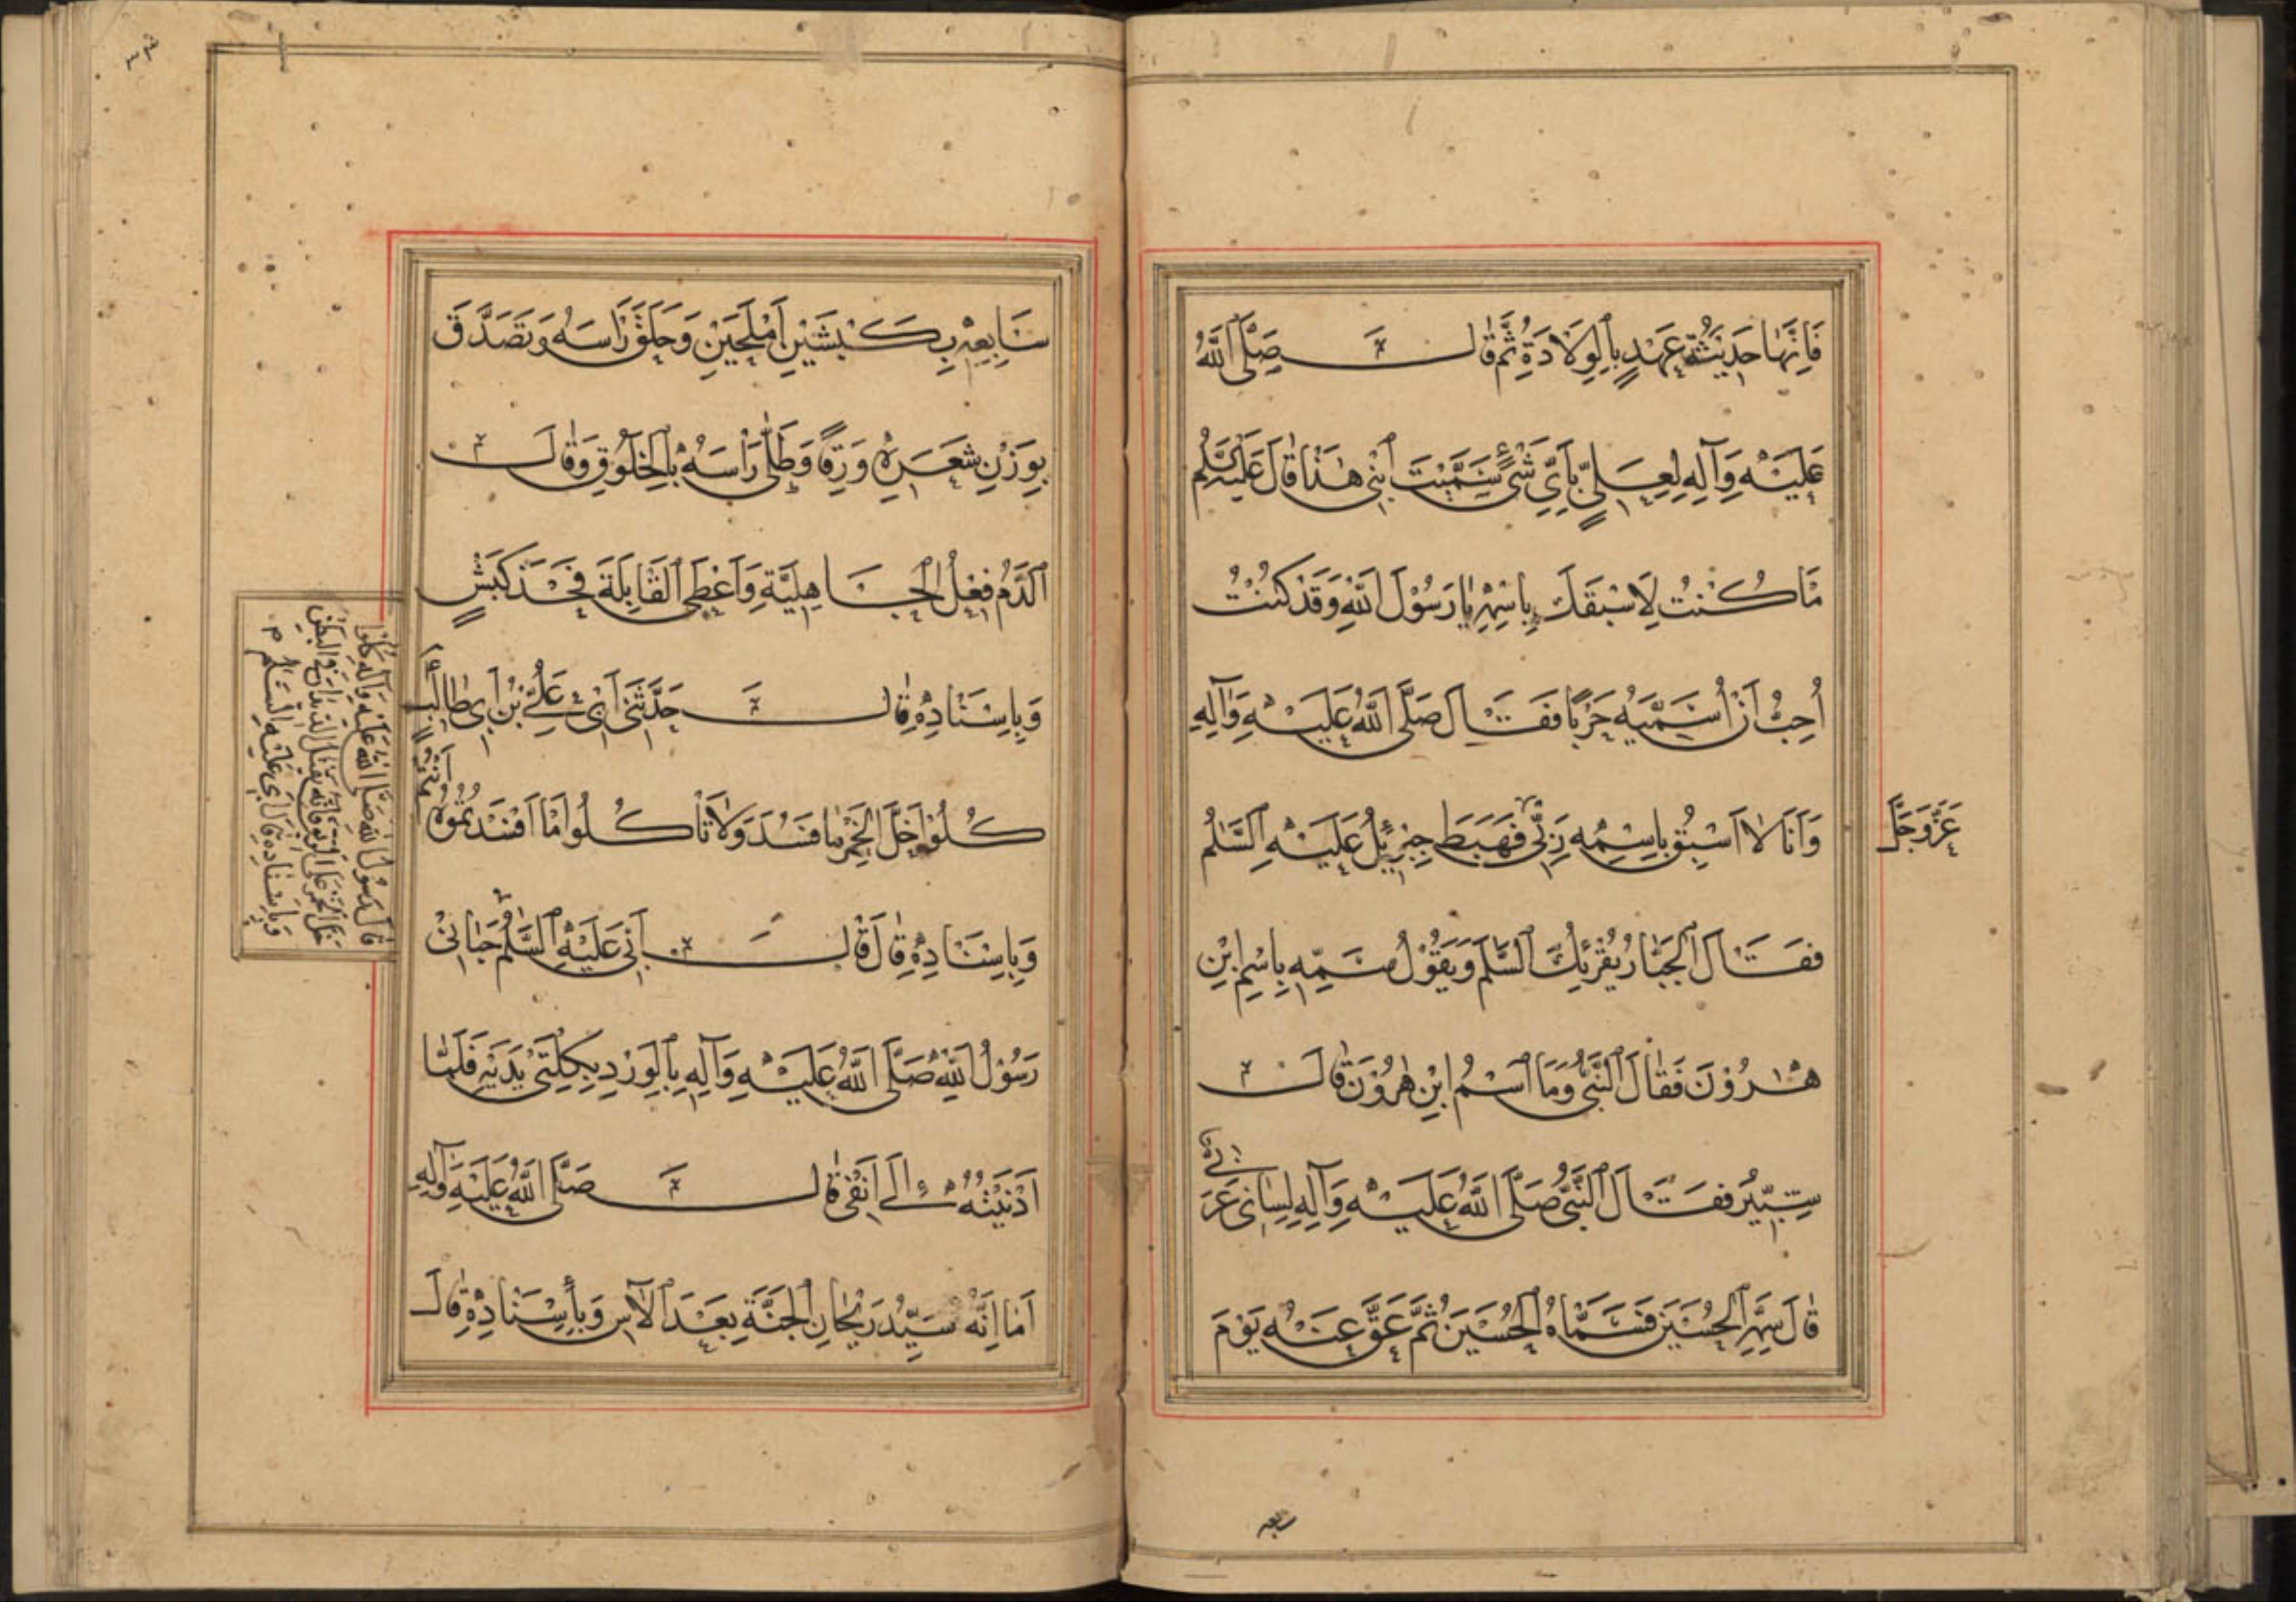 فَاِنَّهَا حَدِيثَةُ عَهْدٍ بِالْوِلَادَةِ ثُمَّ قَالَ صَلَّى اللّٰهُ
عَلَيْهِ وَآلِهِ لِعَلِيٍّ بِاَيِّ شَيْءٍ سَمَّيْتَ ابْنِي هٰذَا قَالَ عَلَيْهِ السَّلٰمُ
مَا كُنْتُ لِاَسْبَقَكَ بِاسْمِهِ يَا رَسُوْلَ اللّٰهِ وَقَدْ كُنْتُ
اُحِبُّ اَنْ اُسَمِّيَهُ حَرْبًا فَقَالَ صَلَّى اللّٰهُ عَلَيْهِ وَآلِهِ
وَاَنَا لَا اَسْبِقُ بِاسْمِهِ رَبِّي فَهَبَطَ جِبْرَئِيلُ عَلَيْهِ السَّلٰمُ
عَزَّ وَجَلَّ
فَقَالَ الْجَبَّارُ يُقْرِئُكَ السَّلٰمَ وَيَقُوْلُ سَمِّهِ بِاسْمِ ابْنِ
هٰرُوْنَ فَقَالَ النَّبِيُّ وَمَا اسْمُ ابْنِ هٰرُوْنَ قَالَ
شَبِّيْرُ فَقَالَ النَّبِيُّ صَلَّى اللّٰهُ عَلَيْهِ وَآلِهِ لِسَانِي عَرَبِيٌّ
قَالَ سَمِّهِ الْحُسَيْنَ فَسَمَّاهُ الْحُسَيْنَ ثُمَّ عَقَّ عَنْهُ يَوْمَ
سابعه
٣٣
سَابِعِهِ بِكَبْشَيْنِ اَمْلَحَيْنِ وَحَلَقَ رَاْسَهُ وَتَصَدَّقَ
بِوَزْنِ شَعَرِهِ وَرِقًا وَطَلٰى رَاْسَهُ بِالْخَلُوْقِ وَقَالَ
الدَّمُ فِعْلُ الْجَاهِلِيَّةِ وَاَعْطَى الْقَابِلَةَ فَخِذَ كَبْشٍ
وَبِاِسْنَادِهِ قَالَ حَدَّثَنِي اَبِي عَلِيُّ بْنُ اَبِي طَالِبٍ
كُلُوْا خَلَّ الْخَمْرِ مَا فَسَدَ وَلَا تَاْكُلُوْا مَا اَفْسَدْتُمُوْهُ اَنْتُمْ
وَبِاِسْنَادِهِ قَالَ قَالَ اَبِي عَلَيْهِ السَّلٰمُ حَبَانِي
رَسُوْلُ اللّٰهِ صَلَّى اللّٰهُ عَلَيْهِ وَآلِهِ بِالْوَرْدِ بِكِلْتَيْ يَدَيْهِ فَلَمَّا
اَدْنَيْتُهُ اِلٰى اَنْفِي قَالَ صَلَّى اللّٰهُ عَلَيْهِ وَآلِهِ
اَمَا اِنَّهُ سَيِّدُ رَيْحَانِ الْجَنَّةِ بَعْدَ الْآسِ وَبِاِسْنَادِهِ قَالَ
قَالَ رَسُوْلُ اللّٰهِ صَلَّى اللّٰهُ عَلَيْهِ وَآلِهِ كُلُوْا
خَلَّ الْخَمْرِ عَلَى الرِّيْقِ فَاِنَّهُ يَقْتُلُ الدِّيْدَانَ فِي الْبَطْنِ
وَبِاِسْنَادِهِ قَالَ اَبِي عَلَيْهِ السَّلَام